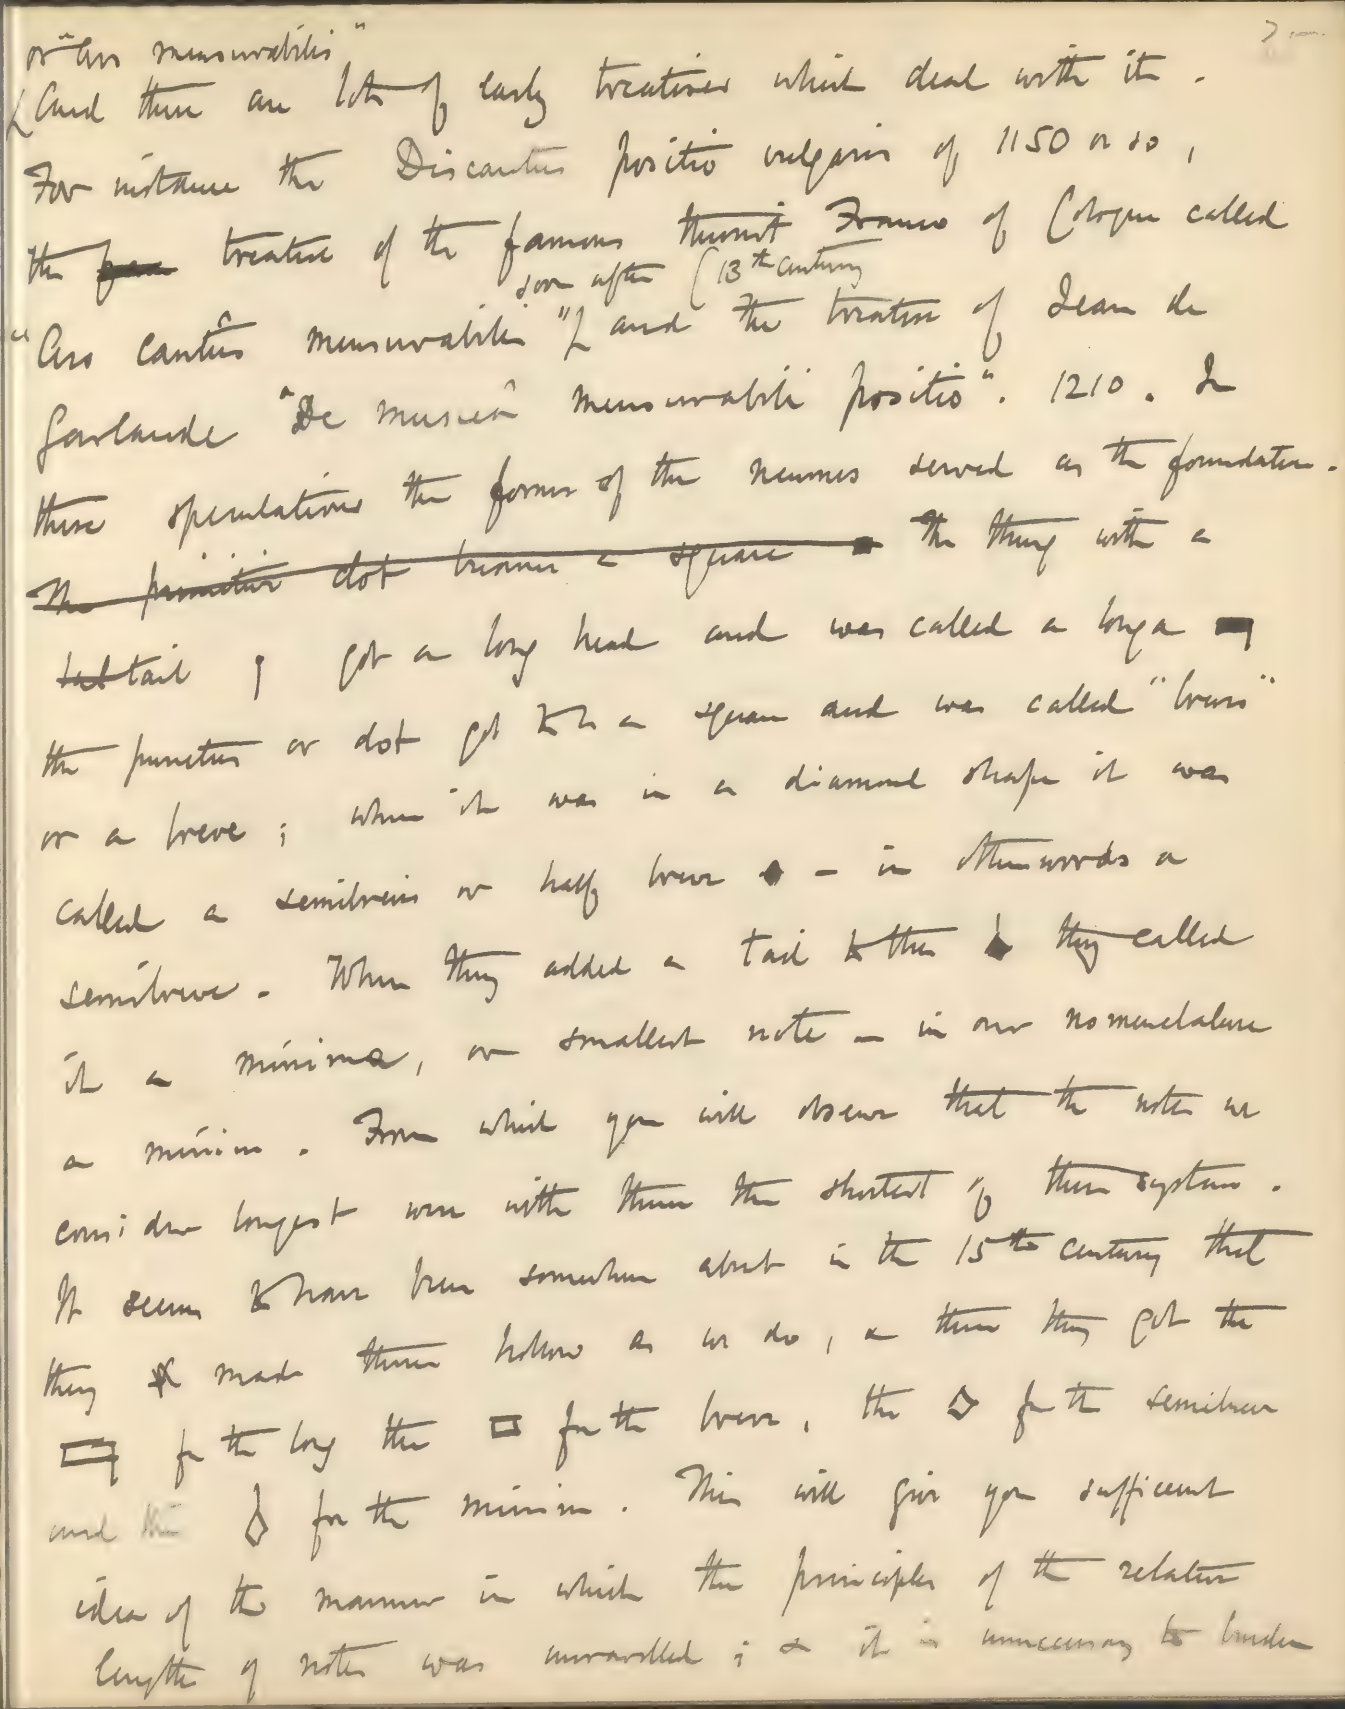 or "Ars mensurabilis"
And there are lots of early treatises which deal with it.
For instance the Discantus positio vulgaris of 1150 or so,
the treatise of the famous theorist Franco of Cologne called
soon after (13th century
"Ars cantûs mensurabilis" and the treatise of Jean de
Garlande "De musicâ mensurabili positio". 1210. In
these speculations the forms of the neumes served as the foundation.
The primitive dot became a square The thing with a
tail got a long head and was called a longa
the punctus or dot got to be a square and was called "brevis"
or a breve; when it was in a diamond shape it was
called a semibrevis or half breve - in other words a
semibreve. When they added a tail to the they called
it a minima, or smallest note - in our nomenclature
a minim. From which you will observe that the notes we
consider longest were with them the shortest of their system.
It seems to have been somewhere about in the 15th century that
they made them hollow as we do, & then they got the
for the long the for the breve, the for the semibreve
and the for the minim. This will give you sufficient
idea of the manner in which the principles of the relative
length of notes was unravelled; & it is unnecessary to burden